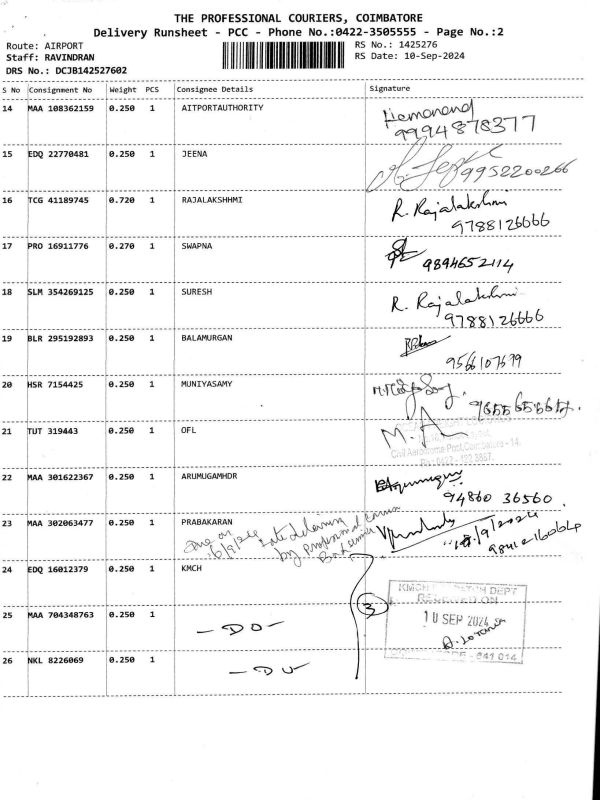 THE PROFESSIONAL COURIERS, COIMBATORE
Delivery Runsheet - PCC - Phone No.:0422-3505555 - Page No.:2
Route: AIRPORT RS No.: 1425276
Staff: RAVINDRAN RS Date: 10-Sep-2024
DRS No.: DCJB142527602
S No Consignment No Weight PCS Consignee Details Signature
14 MAA 108362159 0.250 1 AITPORTAUTHORITY
Hemanand
9994878377
15 EDQ 22770481 0.250 1 JEENA
9952200266
16 TCG 41189745 0.720 1 RAJALAKSHHMI
R. Rajalakshmi
9788126666
17 PRO 16911776 0.270 1 SWAPNA
9894652114
18 SLM 354269125 0.250 1 SURESH
R. Rajalakshmi
9788126666
19 BLR 295192893 0.250 1 BALAMURGAN
9566107679
20 HSR 7154425 0.250 1 MUNIYASAMY
21 TUT 319443 0.250 1 OFL
Civil Aerodrome Post, Coimbatore - 14.
22 MAA 301622367 0.250 1 ARUMUGAMHDR
94860 36560
23 MAA 302063477 0.250 1 PRABAKARAN
Late delivery
by professional courier
24 EDQ 16012379 0.250 1 KMCH
KMCH DEPT
RECEIVED ON
3
10 SEP 2024
25 MAA 704348763 0.250 1 - DO -
26 NKL 8226069 0.250 1 - DO -
641 014